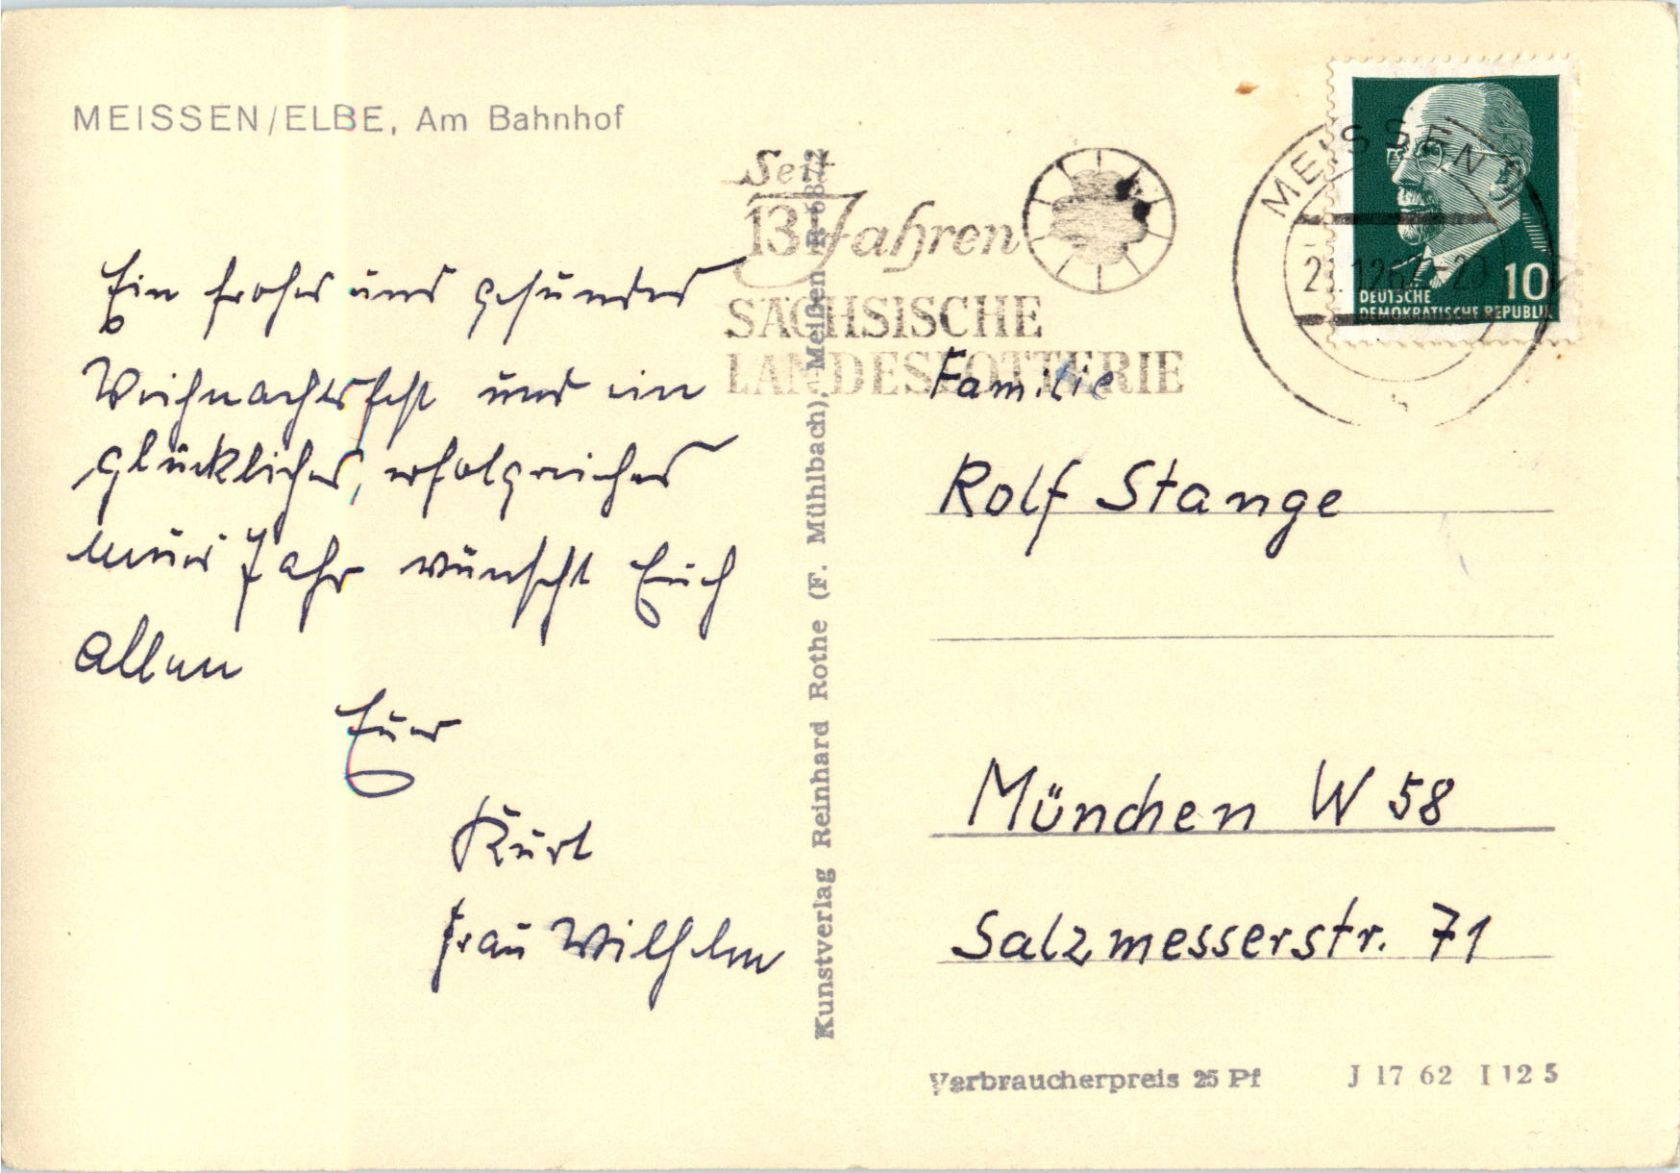 MEISSEN/ELBE, Am Bahnhof
Seit
13 Jahren
SÄCHSISCHE
LANDESLOTTERIE
MEISSEN
DEUTSCHE
DEMOKRATISCHE REPUBLIK
10
Ein frohes und gesundes
Weihnachtsfest und ein
glückliches, erfolgreiches
neues Jahr wünscht Euch
allen
Euer
Kurt
Frau Wilhelm
Kunstverlag Reinhard Rothe (F. Mühlbach), Meißen R
Familie
Rolf Stange
München W 58
Salzmesserstr. 71
Verbraucherpreis 25 Pf
J 17 62 I 12 5